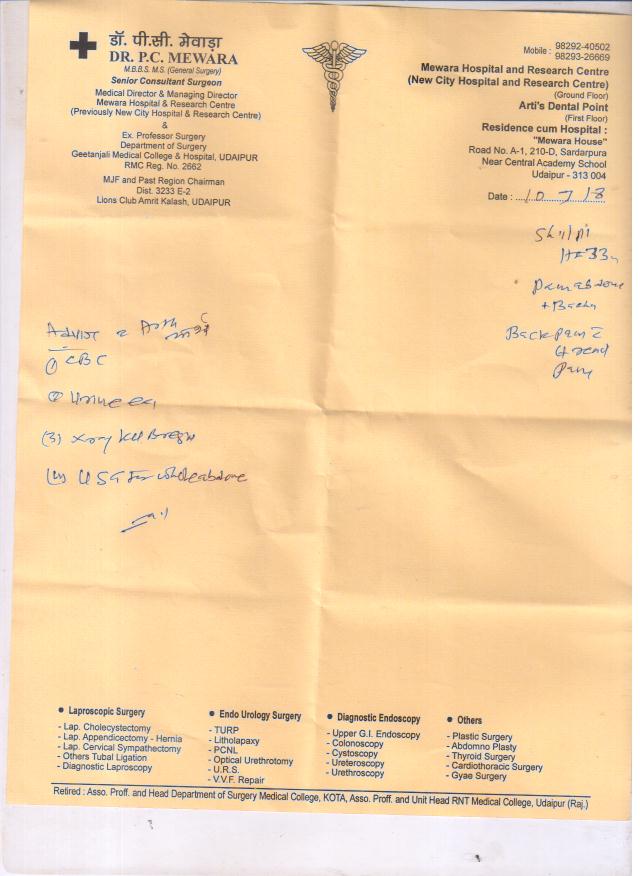 डॉ. पी.सी. मेवाड़ा
DR. P.C. MEWARA
M.B.B.S. M.S. (General Surgery)
Senior Consultant Surgeon
Medical Director & Managing Director
Mewara Hospital & Research Centre
(Previously New City Hospital & Research Centre)
&
Ex. Professor Surgery
Department of Surgery
Geetanjali Medical College & Hospital, UDAIPUR
RMC Reg. No. 2662
MJF and Past Region Chairman
Dist. 3233 E-2
Lions Club Amrit Kalash, UDAIPUR
Mobile : 98292-40502
98293-26669
Mewara Hospital and Research Centre
(New City Hospital and Research Centre)
(Ground Floor)
Arti's Dental Point
(First Floor)
Residence cum Hospital :
"Mewara House"
Road No. A-1, 210-D, Sardarpura
Near Central Academy School
Udaipur - 313 004
Date : 10 7 18
Shilpi
+ Back
Back pain
Advise
(1) CBC
(2) Urine
(3) Xray KUB
(4) USG For whole
• Laproscopic Surgery
- Lap. Cholecystectomy
- Lap. Appendicectomy - Hernia
- Lap. Cervical Sympathectomy
- Others Tubal Ligation
- Diagnostic Laproscopy
• Endo Urology Surgery
- TURP
- Litholapaxy
- PCNL
- Optical Urethrotomy
- U.R.S.
- V.V.F. Repair
• Diagnostic Endoscopy
- Upper G.I. Endoscopy
- Colonoscopy
- Cystoscopy
- Ureteroscopy
- Urethroscopy
• Others
- Plastic Surgery
- Abdomno Plasty
- Thyroid Surgery
- Cardiothoracic Surgery
- Gyae Surgery
Retired : Asso. Proff. and Head Department of Surgery Medical College, KOTA, Asso. Proff. and Unit Head RNT Medical College, Udaipur (Raj.)